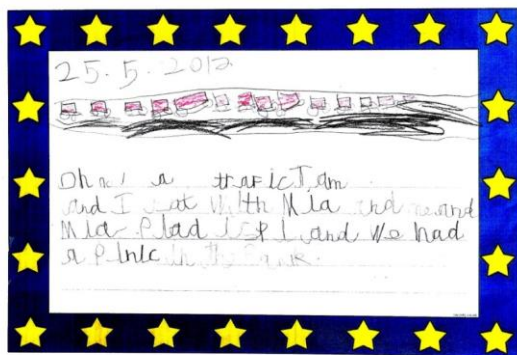 25.5.2012
Oh no! a trafic Jam
and I sat With Mia and me and
Mia Plad and We had
a Picnic in the